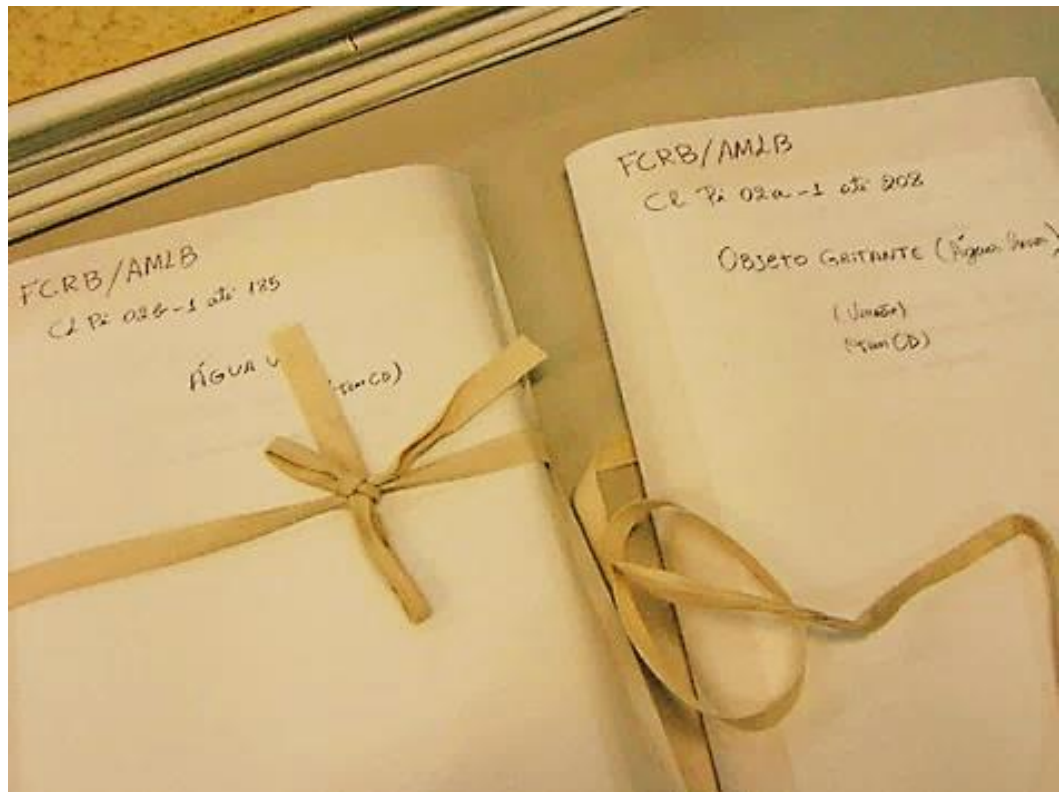 FCRB/AMLB
CL Pi 02b-1 até 185
ÁGUA V
(tem CD)
FCRB/AMLB
CL Pi 02a-1 até 208
OBJETO GRITANTE (Água Viva)
(Versão)
(tem CD)